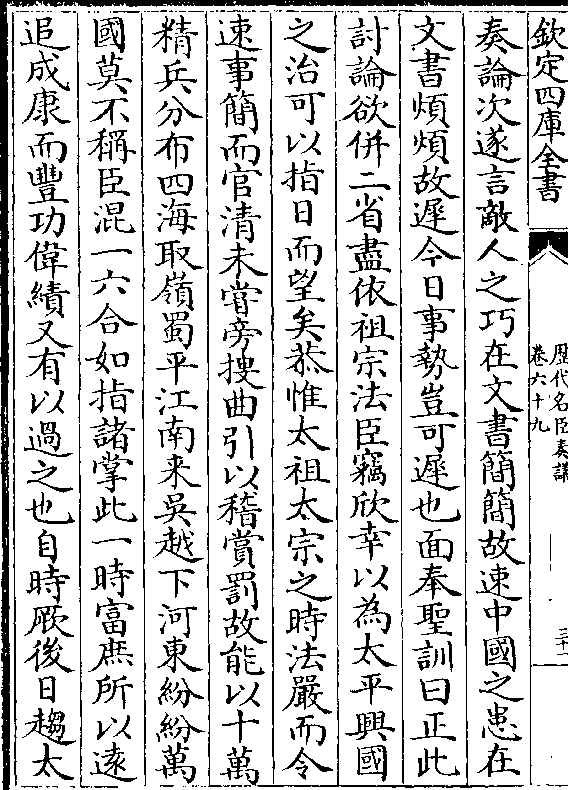 欽定四庫全書
歷代名臣奏議
卷六十九
三十二
奏論次遂言敵人之巧在文書簡簡故速中國之患在
文書煩煩故遲今日事勢豈可遲也面奉聖訓曰正此
討論欲併二省盡依祖宗法臣竊欣幸以為太平興國
之治可以指日而望矣恭惟太祖太宗之時法嚴而令
速事簡而官清未嘗旁搜曲引以稽賞罰故能以十萬
精兵分布四海取嶺蜀平江南来吳越下河東紛紛萬
國莫不稱臣混一六合如指諸掌此一時富庶所以遠
追成康而豐功偉績又有以過之也自時厥後日趨太